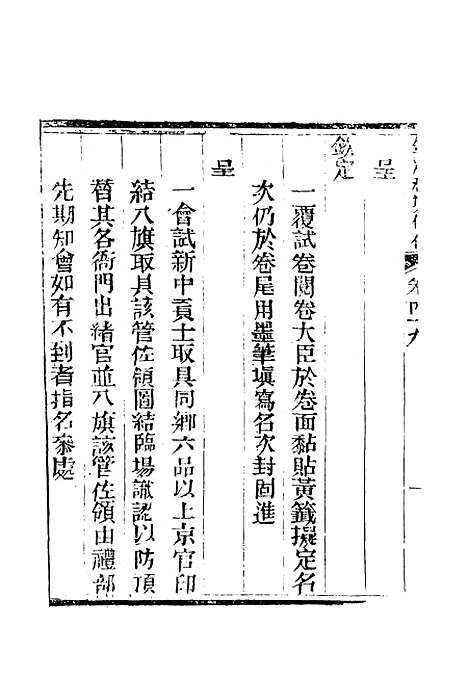 呈
欽定
一覆試卷閱卷大臣於卷面黏貼黃籤擬定名
次仍於卷尾用墨筆填寫名次封固進
呈
一會試新中貢士取具同鄉六品以上京官印
結八旗取具該管佐領圖結臨場識認以防頂
替其各衙門出結官並八旗該管佐領由禮部
先期知會如有不到者指名參處